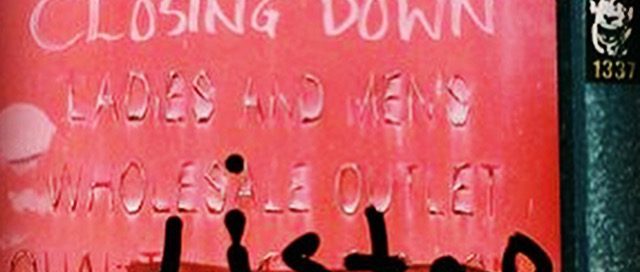 CLOSING DOWN
LADIES AND MEN'S
WHOLESALE OUTLET
1337